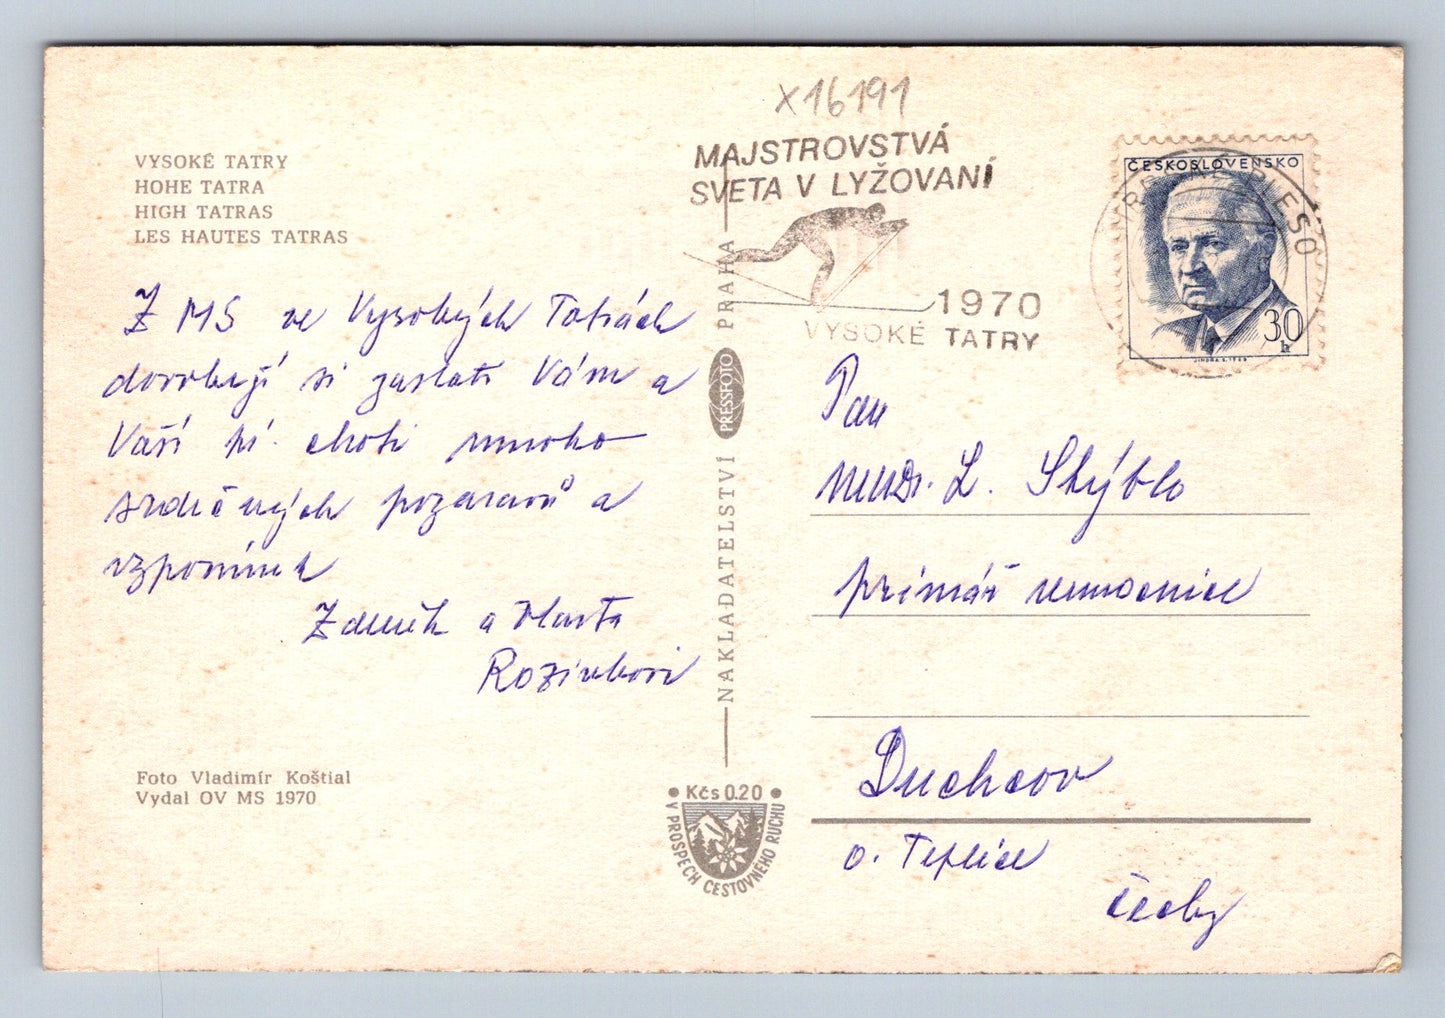 X16191
MAJSTROVSTVÁ
SVETA V LYŽOVANÍ
1970
VYSOKÉ TATRY
ČESKOSLOVENSKO
30
h
JINDRA S. 1968
PLESO
VYSOKÉ TATRY
HOHE TATRA
HIGH TATRAS
LES HAUTES TATRAS
Z MS ve Vysokých Tatrách
dovoluji si zaslati Vám a
Vaší pí. choti mnoho
srdečných pozdravů a
vzpomínek
Zdeněk a Vlasta
Foto Vladimír Koštial
Vydal OV MS 1970
NAKLADATELSTVÍ PRESSFOTO PRAHA
Kčs 0.20
V PROSPECH CESTOVNÉHO RUCHU
Pan
MUDr. L. Stýblo
primář nemocnice
Duchcov
o. Teplice
Čechy